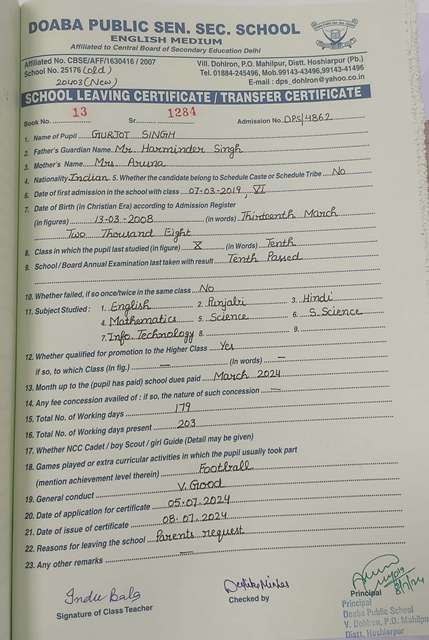 DOABA PUBLIC SEN. SEC. SCHOOL
ENGLISH MEDIUM
Affiliated to Central Board of Secondary Education Delhi
Affiliated No. CBSE/AFF/1630416 / 2007
School No. 25176 (old)
20403 (New)
Vill. Dohlron, P.O. Mahilpur, Distt. Hoshiarpur (Pb.)
Tel. 01884-245496, Mob.99143-43496,99143-41496
E-mail : dps_dohlron@yahoo.co.in
SCHOOL LEAVING CERTIFICATE / TRANSFER CERTIFICATE
Book No. 13 Sr. 1284 Admission No. DPS/4862
1. Name of Pupil GURJOT SINGH
2. Father's Guardian Name Mr. Harminder Singh
3. Mother's Name Mrs. Aruna
4. Nationality Indian 5. Whether the candidate belong to Schedule Caste or Schedule Tribe No
6. Date of first admission in the school with class 07-03-2019, VI
7. Date of Birth (in Christian Era) according to Admission Register
(in figures) 13-03-2008 (in words) Thirteenth March
Two Thousand Eight
8. Class in which the pupil last studied (in figure) X (in Words) Tenth
9. School / Board Annual Examination last taken with result Tenth Passed
10. Whether failed, if so once/twice in the same class No
11. Subject Studied : 1. English 2. Punjabi 3. Hindi
4. Mathematics 5. Science 6. S.Science
7. Info. Technology 8. 9.
12. Whether qualified for promotion to the Higher Class Yes
if so, to which Class (In fig.) — (In words) —
13. Month up to the (pupil has paid) school dues paid March 2024
14. Any fee concession availed of : if so, the nature of such concession —
15. Total No. of Working days 179
16. Total No. of Working days present 203
17. Whether NCC Cadet / boy Scout / girl Guide (Detail may be given)
18. Games played or extra curricular activities in which the pupil usually took part
(mention achievement level therein) Football
19. General conduct V. Good
20. Date of application for certificate 05.07.2024
21. Date of issue of certificate 08.07.2024
22. Reasons for leaving the school Parents request
23. Any other remarks —
Indu Bala
Signature of Class Teacher
Checked by
8/7/24
Principal
Principal
Doaba Public School
V. Dohlron, P.O. Mahilpur
Distt. Hoshiarpur